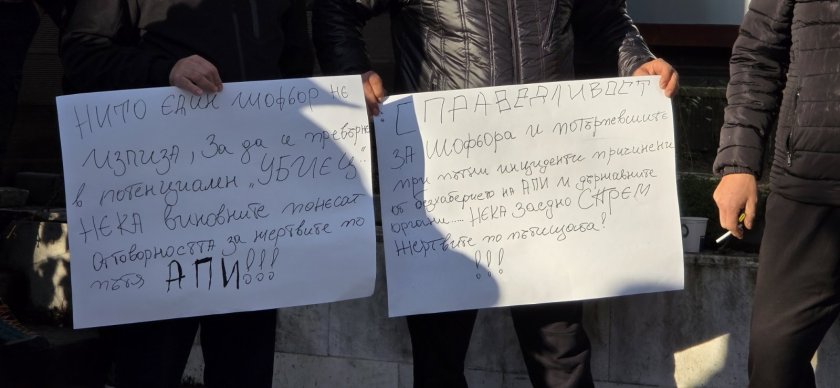 НИТО ЕДИН ШОФЬОР НЕ
ИЗЛИЗА, За да и превърне
в потенциален „УБИЕЦ“.
НЕКА виновните понесат
Отговорността за жертвите по
пътя АПИ!!!
СПРАВЕДЛИВОСТ
ЗА шофьора и потърпевшите
при пътни инциденти причинени
от безхаберието на АПИ и държавните
органи..... НЕКА заедно СПРЕМ
Жертвите по пътищата!
!!!